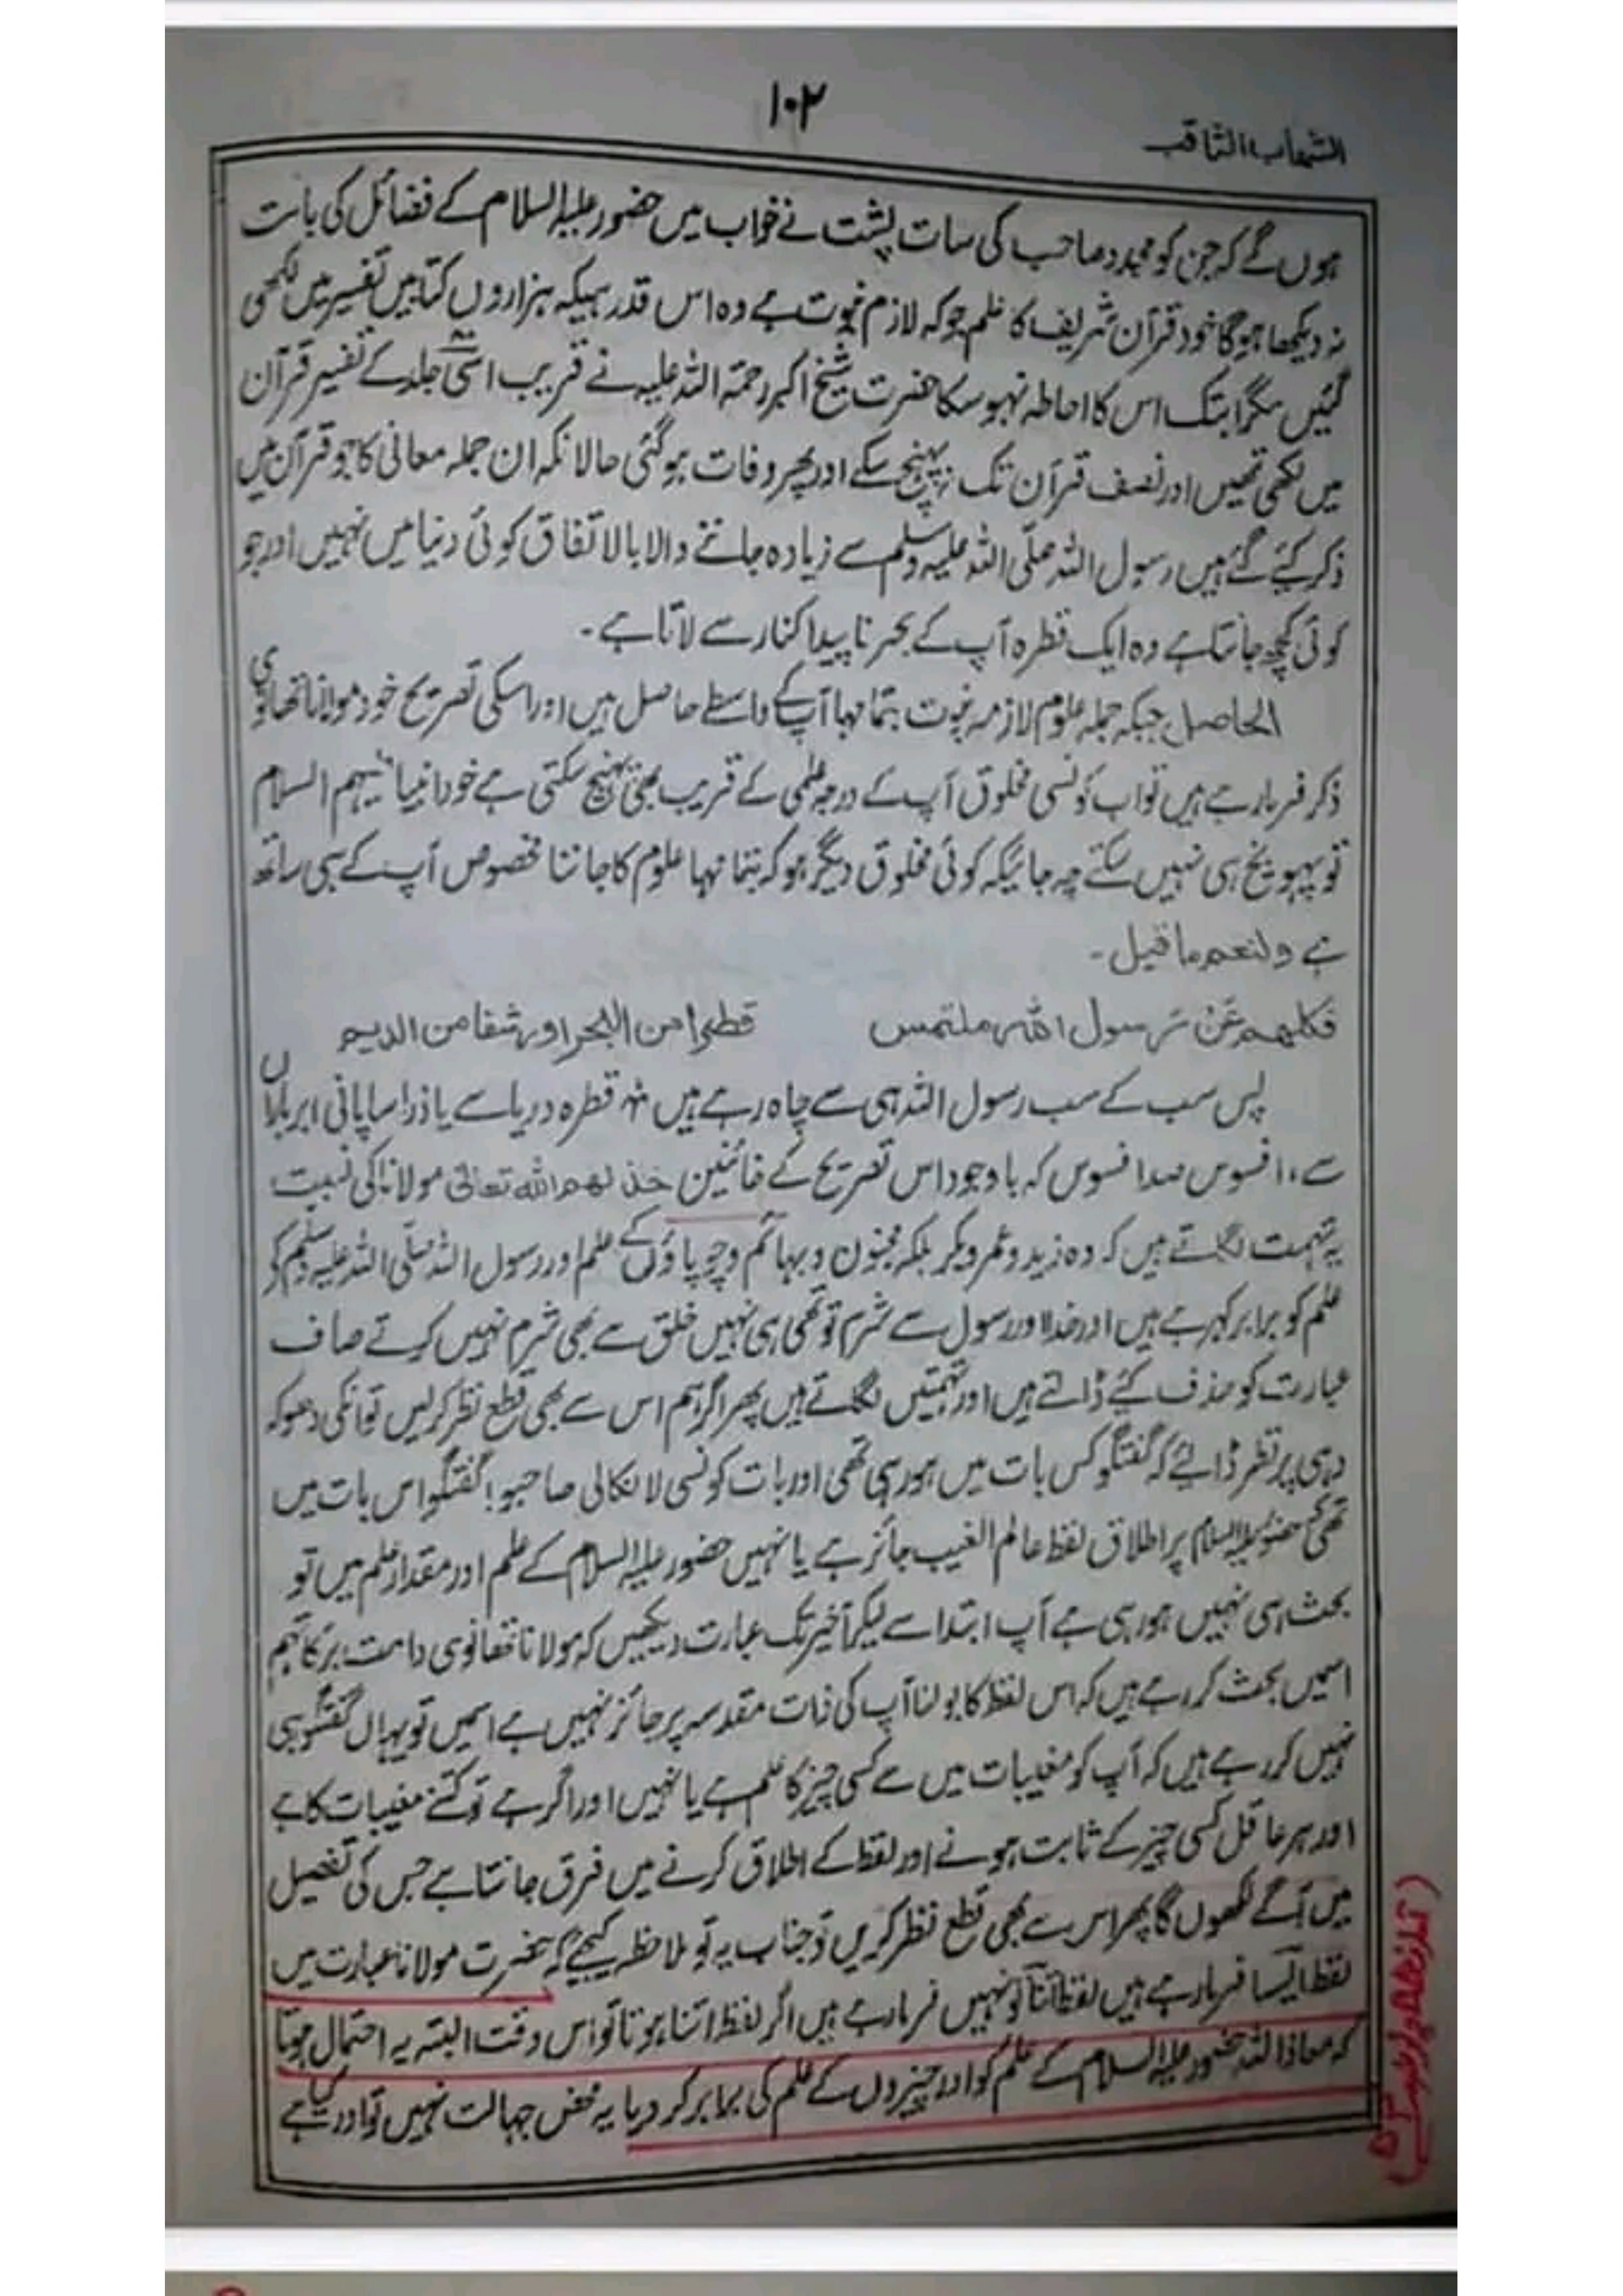 ۱۰۲
الشهاب الثاقب
ہوں گے کہ جن کو مجدد صاحب کی سات پشت نے خواب میں حضور علیہ السلام کے فضائل کی بات
نہ دیکھا ہوگا خود قرآن شریف کا علم جو کہ لازم نبوت ہے وہ اس قدر ہیکہ ہزاروں کتابیں تفسیر میں لکھی
گئیں مگر ابتک اس کا احاطہ نہو سکا حضرت شیخ اکبر رحمۃ اللہ علیہ نے قریب اسّی جلد کے تفسیر قرآن
میں لکھی تھیں اور نصف قرآن تک نہ پہنچ سکے اور پھر وفات ہو گئی حالانکہ ان جملہ معانی کا جو قرآن میں
ذکر کیئے گئے ہیں رسول اللہ صلّی اللہ علیہ وسلم سے زیادہ جاننے والا بالاتفاق کوئی دنیا میں نہیں اور جو
کوئی کچھ جانتا ہے وہ ایک قطرہ آپ کے بحر ناپیدا کنار سے لاتا ہے۔
الحاصل جبکہ جملہ علوم لازمہ نبوت بتمامہا آپ کے واسطے حاصل ہیں اور اسکی تصریح خود مولانا تھانوی
ذکر فرما رہے ہیں تو اب کونسی مخلوق آپ کے درجہ علمی کے قریب بھی پہنچ سکتی ہے خود انبیاء علیہم السلام
تو پہونچ ہی نہیں سکتے چہ جائیکہ کوئی مخلوق دیگر ہو کہ بتمامہا علوم کا جاننا مخصوص آپ کے ہی ساتھ
ہے ولنعم ما قیل۔
فکلهم عن رسول اللہ ملتمس قطرا من البحر او رشفا من الدیم
پس سب کے سب رسول اللہ ہی سے چاہ رہے ہیں قطرہ دریا سے یا ذرا سا پانی ابر باراں
سے، افسوس صد افسوس کہ باوجود اس تصریح کے خائنین خذلهم اللہ تعالیٰ مولانا کی نسبت
یہ تہمت لگاتے ہیں کہ وہ زید و عمر و بکر بلکہ مجنون و بہائم و چوپاؤں کے علم اور رسول اللہ صلّی اللہ علیہ وسلم کے
علم کو برابر کہرہے ہیں اور خدا اور رسول سے شرم تو تھی ہی نہیں خلق سے بھی شرم نہیں کرتے صاف
عبارت کو حذف کئے ڈالتے ہیں اور تہمتیں لگاتے ہیں پھر اگر ہم اس سے بھی قطع نظر کر لیں تو انکی دھوکہ
دہی پر نظر ڈالئے کہ گفتگو کس بات میں ہو رہی تھی اور بات کونسی لا نکالی صاحبو! گفتگو اس بات میں
تھی کہ حضور علیہ السلام پر اطلاق لفظ عالم الغیب جائز ہے یا نہیں حضور علیہ السلام کے علم اور مقدار علم میں تو
بحث ہی نہیں ہو رہی ہے آپ ابتدا سے لیکر آخیر تک عبارت دیکھیں کہ مولانا تھانوی دامت برکاتہم
اسمیں بحث کر رہے ہیں کہ اس لفظ کا بولنا آپ کی ذات مقدسہ پر جائز نہیں ہے اسمیں تو یہاں گفتگو ہی
نہیں کر رہے ہیں کہ آپ کو مغیبات میں سے کسی چیز کا علم ہے یا نہیں اور اگر ہے تو کتنے مغیبات کا ہے
اور ہر عاقل کسی چیز کے ثابت ہونے اور لفظ کے اطلاق کرنے میں فرق جانتا ہے جس کی تفصیل
میں آگے لکھوں گا پھر اس سے بھی قطع نظر کریں تو جناب یہ تو ملاحظہ کیجیے کہ حضرت مولانا عبارت میں
لفظ ایسا فرما رہے ہیں لفظ اتنا تو نہیں فرما رہے ہیں اگر لفظ اتنا ہوتا تو اس وقت البتہ یہ احتمال ہوتا
کہ معاذ اللہ حضور علیہ السلام کے علم کو اور چیزوں کے علم کی برابر کر دیا یہ محض جہالت نہیں تو اور کیا ہے